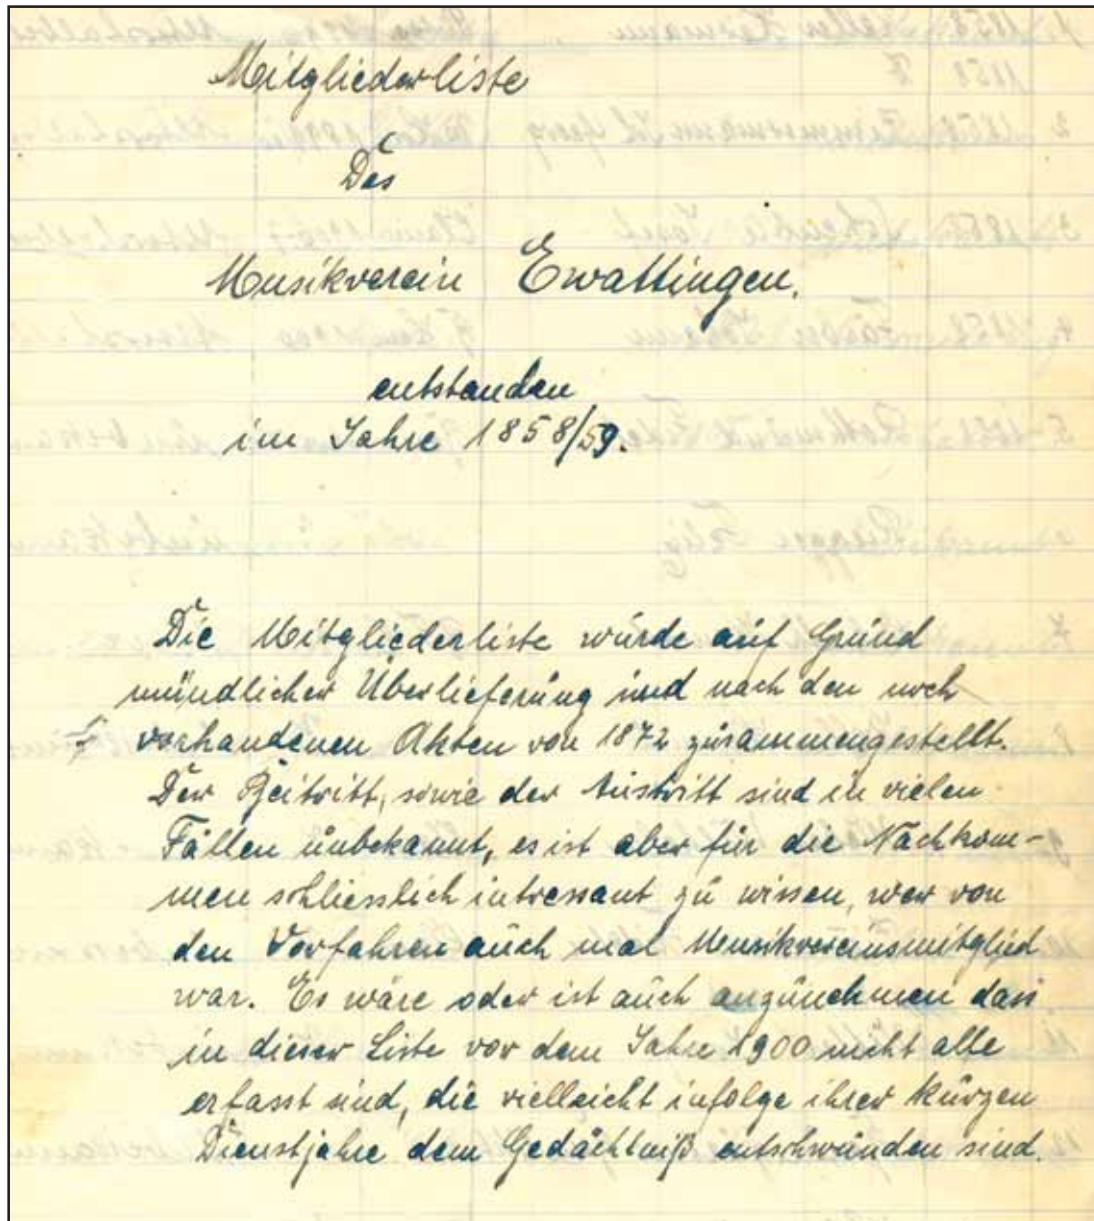 Mitgliederliste
Des
Musikverein Ewattingen.
entstanden
im Jahre 1858/59.
Die Mitgliederliste wurde auf Grund
mündlicher Überlieferung und nach den noch
vorhandenen Akten von 1872 zusammengestellt.
Der Beitritt, sowie der Austritt sind in vielen
Fällen unbekannt, es ist aber für die Nachkom-
men schliesslich intressant zu wissen, wer von
den Vorfahren auch mal Musikvereinsmitglied
war. Es wäre oder ist auch anzunehmen dass
in dieser Liste vor dem Jahre 1900 nicht alle
erfasst sind, die vielleicht infolge ihrer kurzen
Dienstjahre dem Gedächtniß entschwunden sind.